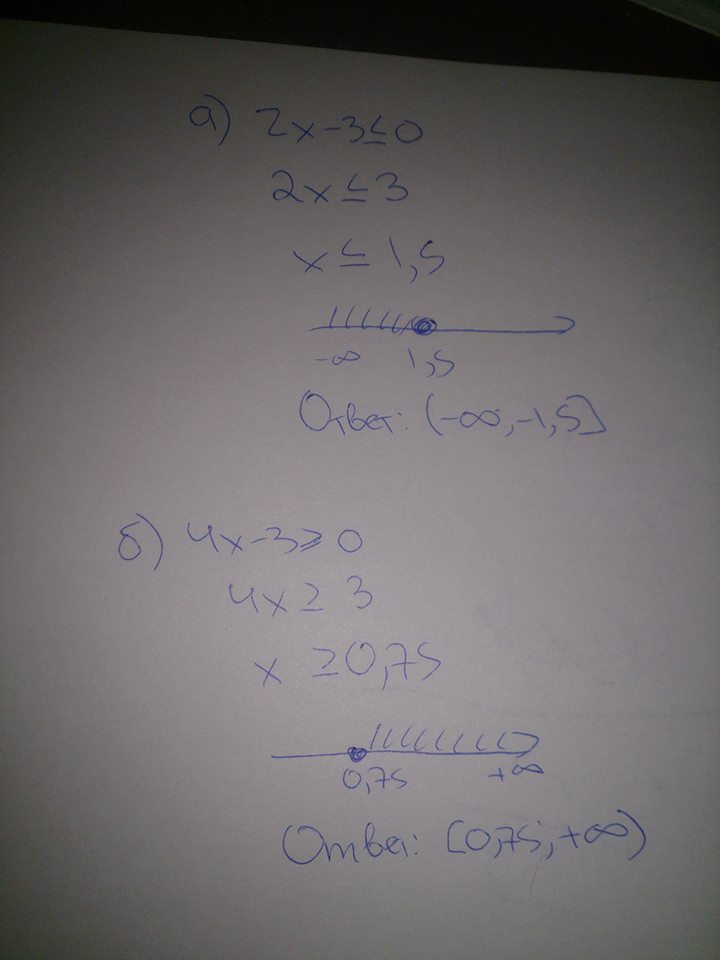 а) 2x-3≤0
2x≤3
x≤1,5
-∞ 1,5
Ответ: (-∞,-1,5]
б) 4x-3⩾0
4x≥3
x ≥0,75
0,75 +∞
Ответ: [0,75;+∞)